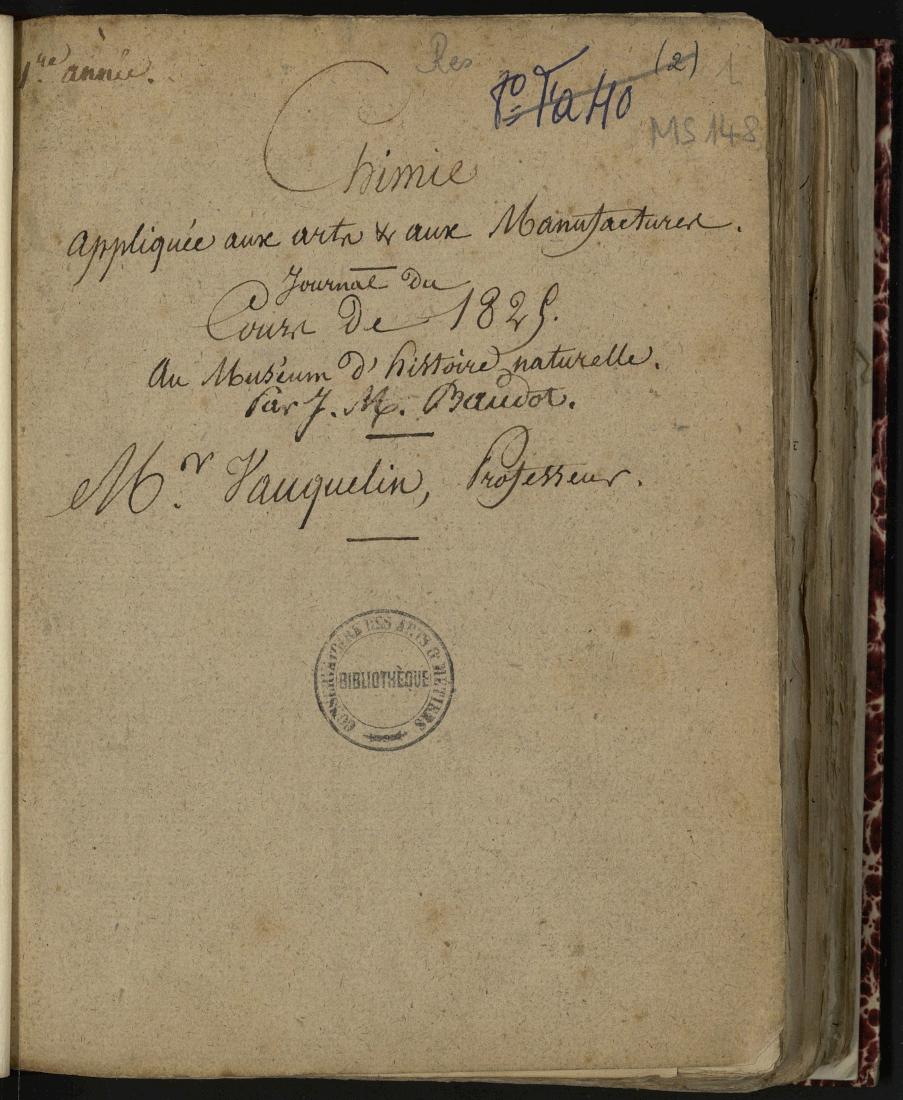 1.re année.
Res
8° Fa 40 (2)
1
MS 148
Chimie
appliquée aux arts & aux Manufactures.
Journal du
Cours de 1825.
Au Muséum d'histoire naturelle.
Par J. M. Baudot.
Mr. Vauquelin, Professeur.
CONSERVATOIRE DES ARTS & METIERS
BIBLIOTHÈQUE